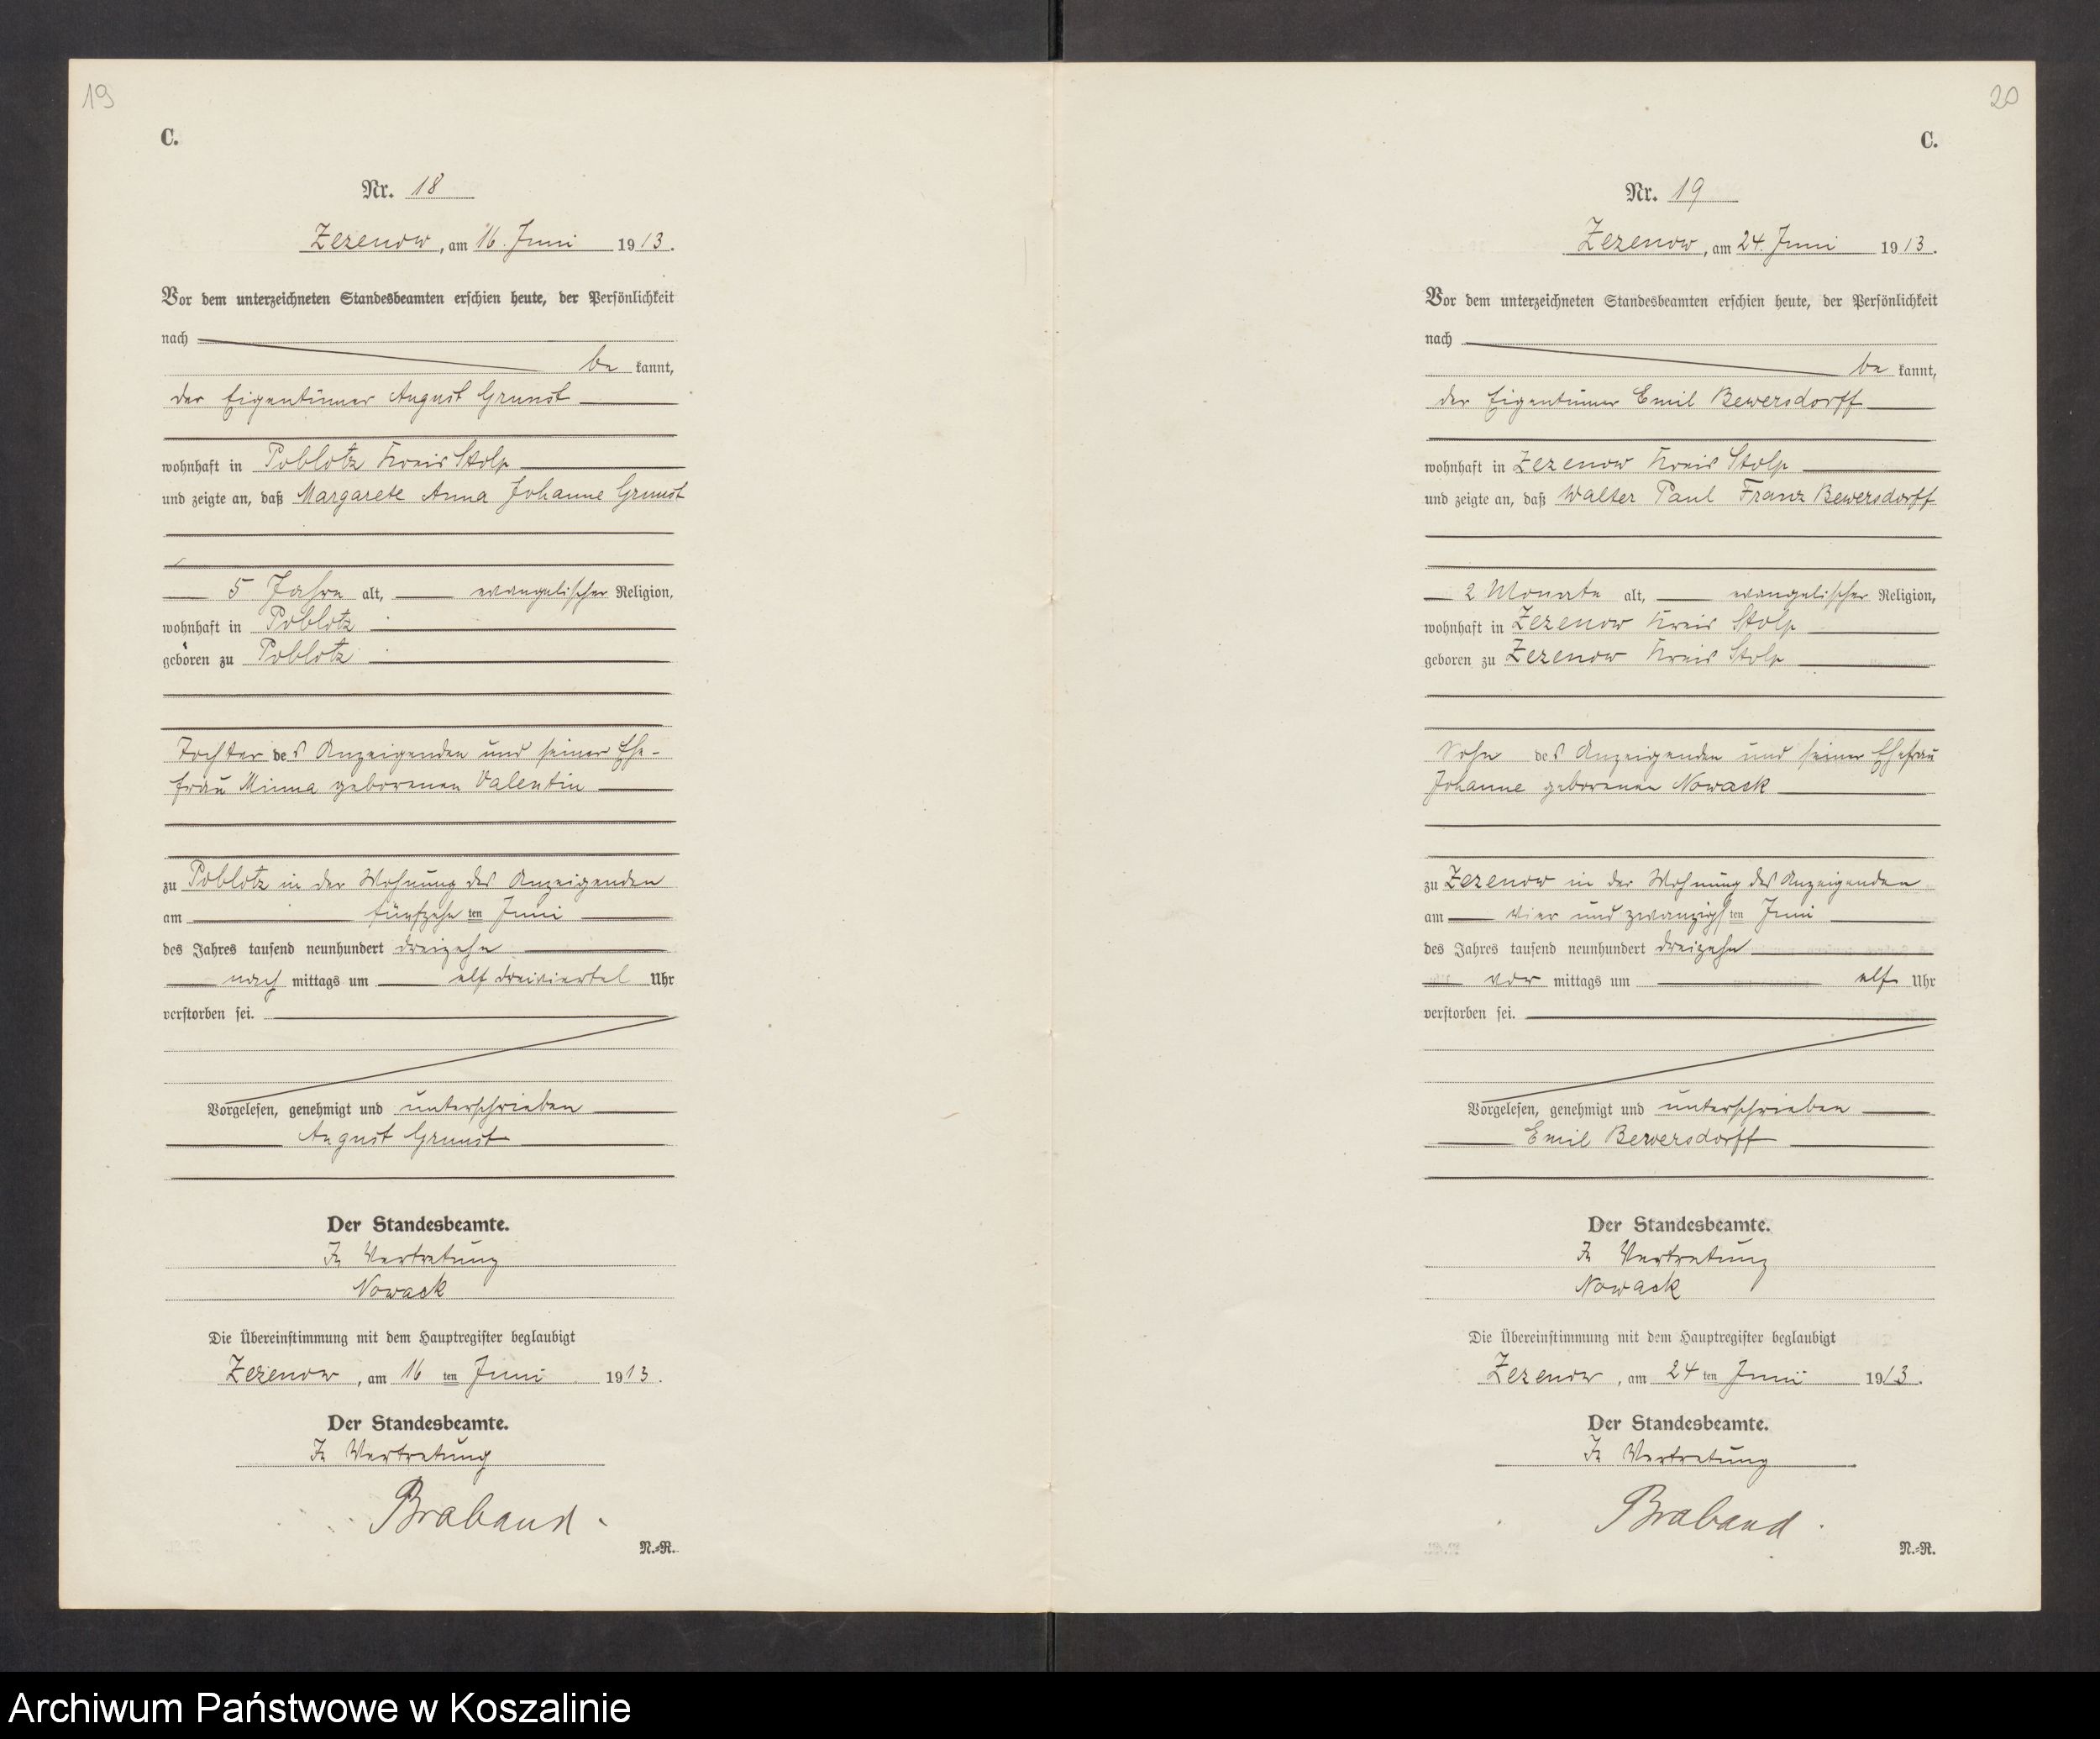 19
C.
Nr. 18
Zezenow, am 16. Juni 1913.
Vor dem unterzeichneten Standesbeamten erschien heute, der Persönlichkeit
nach
be kannt,
der Eigentümer August Grunst
wohnhaft in Poblotz Kreis Stolp
und zeigte an, daß Margarete Anna Johanne Grunst
5 Jahre alt, evangelischer Religion,
wohnhaft in Poblotz
geboren zu Poblotz
Tochter des Anzeigenden und seiner Ehe-
frau Minna geborenen Valentin
zu Poblotz in der Wohnung des Anzeigenden
am fünfzehn ten Juni
des Jahres tausend neunhundert dreizehn
nach mittags um elf dreiviertel Uhr
verstorben sei.
Vorgelesen, genehmigt und unterschrieben
August Grunst
Der Standesbeamte.
In Vertretung
Nowack
Die Übereinstimmung mit dem Hauptregister beglaubigt
Zezenow, am 16 ten Juni 1913.
Der Standesbeamte.
In Vertretung
Braband.
N.=R.
20
C.
Nr. 19
Zezenow, am 24. Juni 1913.
Vor dem unterzeichneten Standesbeamten erschien heute, der Persönlichkeit
nach
be kannt,
der Eigentümer Emil Bewersdorff
wohnhaft in Zezenow Kreis Stolp
und zeigte an, daß Walter Paul Franz Bewersdorff
2 Monate alt, evangelischer Religion,
wohnhaft in Zezenow Kreis Stolp
geboren zu Zezenow Kreis Stolp
Sohn des Anzeigenden und seiner Ehefrau
Johanne geborenen Nowack
zu Zezenow in der Wohnung des Anzeigenden
am vier und zwanzigs ten Juni
des Jahres tausend neunhundert dreizehn
vor mittags um elf Uhr
verstorben sei.
Vorgelesen, genehmigt und unterschrieben
Emil Bewersdorff
Der Standesbeamte.
In Vertretung
Nowack
Die Übereinstimmung mit dem Hauptregister beglaubigt
Zezenow, am 24 ten Juni 1913.
Der Standesbeamte.
In Vertretung
Braband.
N.=R.
Archiwum Państwowe w Koszalinie